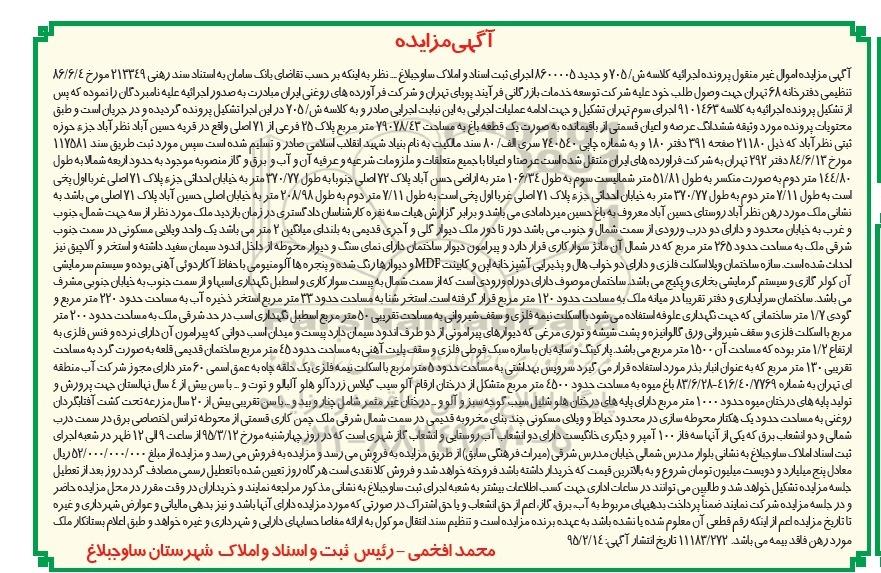 آگهی مزایده
آگهی مزایده اموال غیر منقول پرونده اجرائیه کلاسه ش/۷۰۵ و جدید ۸۶۰۰۰۰۵ اجرای ثبت اسناد و املاک ساوجبلاغ ... نظر به اینکه بر حسب تقاضای بانک سامان به استناد سند رهنی ۲۱۳۳۴۹ مورخ ۸۶/۶/۴
تنظیمی دفترخانه ۶۸ تهران جهت وصول طلب خود علیه شرکت توسعه خدمات بازرگانی فرآیند پویای تهران و شرکت فرآورده های روغنی ایران مبادرت به صدور اجرائیه علیه نامبردگان را نموده که پس
از تشکیل پرونده اجرائیه به کلاسه ۹۱۰۱۴۶۳ اجرای سوم تهران تشکیل و جهت ادامه عملیات اجرایی به این نیابت اجرایی صادر و به کلاسه ش/۷۰۵ در این اجرا تشکیل پرونده گردیده و در جریان است و طبق
محتویات پرونده مورد وثیقه ششدانگ عرصه و اعیان قسمتی از باقیمانده به صورت یک قطعه باغ به مساحت ۷۹۰۷۸/۴۳ متر مربع پلاک ۲۵ فرعی از ۷۱ اصلی واقع در قریه حسین آباد نظرآباد جزء حوزه
ثبتی نظرآباد که ذیل ۲۱۱۸۰ صفحه ۳۹۱ دفتر ۱۸۰ و به شماره چاپی ۷۴۰۵۴۰ سری الف/۸۰ سند مالکیت به نام بنیاد شهید انقلاب اسلامی صادر و تسلیم شده است سپس مورد ثبت طریق سند ۱۱۷۵۸۱
مورخ ۸۴/۶/۱۳ دفتر ۲۹۲ تهران به شرکت فراورده های ایران منتقل شده است عرصتا و اعیانا با جمیع متعلقات و ملزومات شرعیه و عرفیه آن و آب و برق و گاز منصوبه موجود به حدود اربعه شمالا به طول
۱۴۴/۸۰ متر دوم به صورت منکسر به طول ۵۱/۸۱ متر شمالیست سوم به طول ۱۰۶/۳۴ متر به اراضی حسن آباد پلاک ۷۲ اصلی جنوبا به طول ۳۷۰/۷۷ متر به خیابان احداثی جزء پلاک ۷۱ اصلی غربا اول پخی
است به طول ۷/۱۱ متر دوم به طول ۳۷۰/۷۷ متر به خیابان احداثی جزء پلاک ۷۱ اصلی غربا اول پخی است به طول ۷/۱۱ متر دوم به طول ۲۰۸/۹۸ متر به خیابان اصلی حسین آباد پلاک ۷۱ اصلی می باشد به
نشانی ملک مورد رهن نظر آباد روستای حسین آباد معروف به باغ حسین میردامادی می باشد و برابر گزارش هیات سه نفره کارشناسان دادگستری در زمان بازدید ملک مورد نظر از سه جهت شمال، جنوب
و غرب به خیابان محدود و دارای دو درب ورودی از سمت شمال و جنوب می باشد دور تا دور ملک دیوار گلی و آجری قدیمی به بلندای میانگین ۲ متر می باشد یک واحد ویلایی مسکونی در سمت جنوب
شرقی ملک به مساحت حدود ۲۶۵ متر مربع که در شمال آن مانژ سوارکاری قرار دارد و پیرامون دیوار ساختمان دارای نمای سنگ و دیوار محوطه از داخل اندود سیمان سفید داشته و استخر و آلاچیق نیز
احداث شده است. سازه ساختمان ویلا اسکلت فلزی و دارای دو خواب هال و پذیرایی آشپزخانه اپن و کابینت MDF و دیوارها رنگ شده و پنجره ها آلومنیومی با حفاظ آکاردئونی آهنی بوده و سیستم سرمایشی
آن کولر گازی و سیستم گرمایشی بخاری و پکیج می باشد. ساختمان موصوف دارای دو راه ورودی است که از سمت شمال به پیست سوارکاری و اسطبل نگهداری اسبها و از سمت جنوب به خیابان جنوبی مشرف
می باشد. ساختمان سرایداری و دفتر تقریبا در میانه ملک به مساحت حدود ۱۲۰ متر مربع قرار گرفته است. استخر شنا به مساحت حدود ۳۳ متر مربع استخر ذخیره آب به مساحت حدود ۲۲۰ متر مربع و
گودی ۱/۷ متر ساختمانی که جهت نگهداری علوفه استفاده می شود با اسکلت نیمه فلزی و سقف شیروانی به مساحت تقریبی ۵۰ متر مربع اسطبل نگهداری اسب در حد شرقی ملک به مساحت حدود ۲۰۰ متر
مربع با اسکلت فلزی و سقف شیروانی ورق گالوانیزه و پشت شیشه و توری مرغی که دیوارهای پیرامونی از دو طرف اندود سیمان دارد پیست و میدان اسب دوانی که پیرامون آن دارای نرده و فنس فلزی به
ارتفاع ۱/۲ متر بوده که مساحت آن ۱۵۰۰ متر مربع می باشد. پارکینگ و سایه بان با سازه سبک قوطی فلزی و سقف پلیت آهنی به مساحت حدود ۴۵ متر مربع ساختمان قدیمی قلعه به صورت گرد به مساحت
تقریبی ۱۳۰ متر مربع که به عنوان انبار بذر مورد استفاده قرار می گیرد سرویس بهداشتی به مساحت حدود ۵ متر مربع با اسکلت نیمه فلزی یک حلقه چاه به عمق اسمی ۶۰ متر دارای مجوز شرکت آب منطقه
ای تهران به شماره ۴۱۶/۴۰/۷۷۶۹-۸۳/۶/۲۸ باغ میوه به مساحت حدود ۴۵۰۰ متر مربع متشکل از درختان ارقام آلو سیب گیلاس زردآلو هلو آلبالو و توت و ... با سن بیش از ۴ سال نهالستان جهت پرورش و
تولید پایه های درختان میوه حدود ۱۰۰۰ متر مربع دارای پایه های درختان هلو شلیل سیب گوجه سبز و آلو و ... درختان غیر مثمر شامل چنار و بید و ... با سن تقریبی بیش از ۲۰ سال مزرعه تحت کشت آفتابگردان
روغنی به مساحت حدود یک هکتار محوطه سازی در محدود حیاط و ویلای مسکونی چند بنای مخروبه قدیمی در سمت شمال شرقی ملک چمن کاری قسمتی از محوطه ترانس اختصاصی برق در سمت درب
شمالی و دو انشعاب برق که یکی از آنها سه فاز ۱۰۰ آمپر و دیگری خانگیست دارای دو انشعاب آب روستایی و انشعاب گاز شهری است که در روز چهارشنبه مورخ ۹۵/۳/۱۲ از ساعت ۹ الی ۱۲ ظهر در شعبه اجرای
ثبت اسناد املاک ساوجبلاغ به نشانی بلوار مدرس شمالی خیابان مدرس شرقی (میراث فرهنگی سابق) از طریق مزایده به فروش می رسد و مزایده به فروش می رسد و مزایده از مبلغ ۵۲/۰۰۰/۰۰۰/۰۰۰ ریال
معادل پنج میلیارد و دویست میلیون تومان شروع و به بالاترین قیمت که خریدار داشته باشد فروخته خواهد شد و فروش کلا نقدی است هر گاه روز تعیین شده با تعطیل رسمی مصادف گردد روز بعد از تعطیل
جلسه مزایده تشکیل خواهد شد و طالبین می توانند در ساعات اداری جهت کسب اطلاعات بیشتر به شعبه اجرای ثبت ساوجبلاغ به نشانی مذکور مراجعه نمایند و خریداران در وقت مقرر در محل مزایده حاضر
و در جلسه مزایده شرکت نمایند ضمنا پرداخت بدهیهای مربوط به آب، برق، گاز، اعم از حق انشعاب و یا حق اشتراک در صورتی که مورد مزایده دارای آنها باشد و نیز بدهی مالیاتی و عوارض شهرداری و غیره
تا تاریخ مزایده اعم از اینکه رقم قطعی آن معلوم شده یا نشده باشد به عهده برنده مزایده است و تنظیم سند انتقال موکول به ارائه مفاصا حسابهای دارایی و شهرداری و غیره خواهد و طبق اعلام بستانکار ملک
مورد رهن فاقد بیمه می باشد. ۱۱۱۸۳/۲۷۲ تاریخ انتشار آگهی: ۹۵/۲/۱۴
محمد افخمی – رئیس ثبت و اسناد و املاک شهرستان ساوجبلاغ